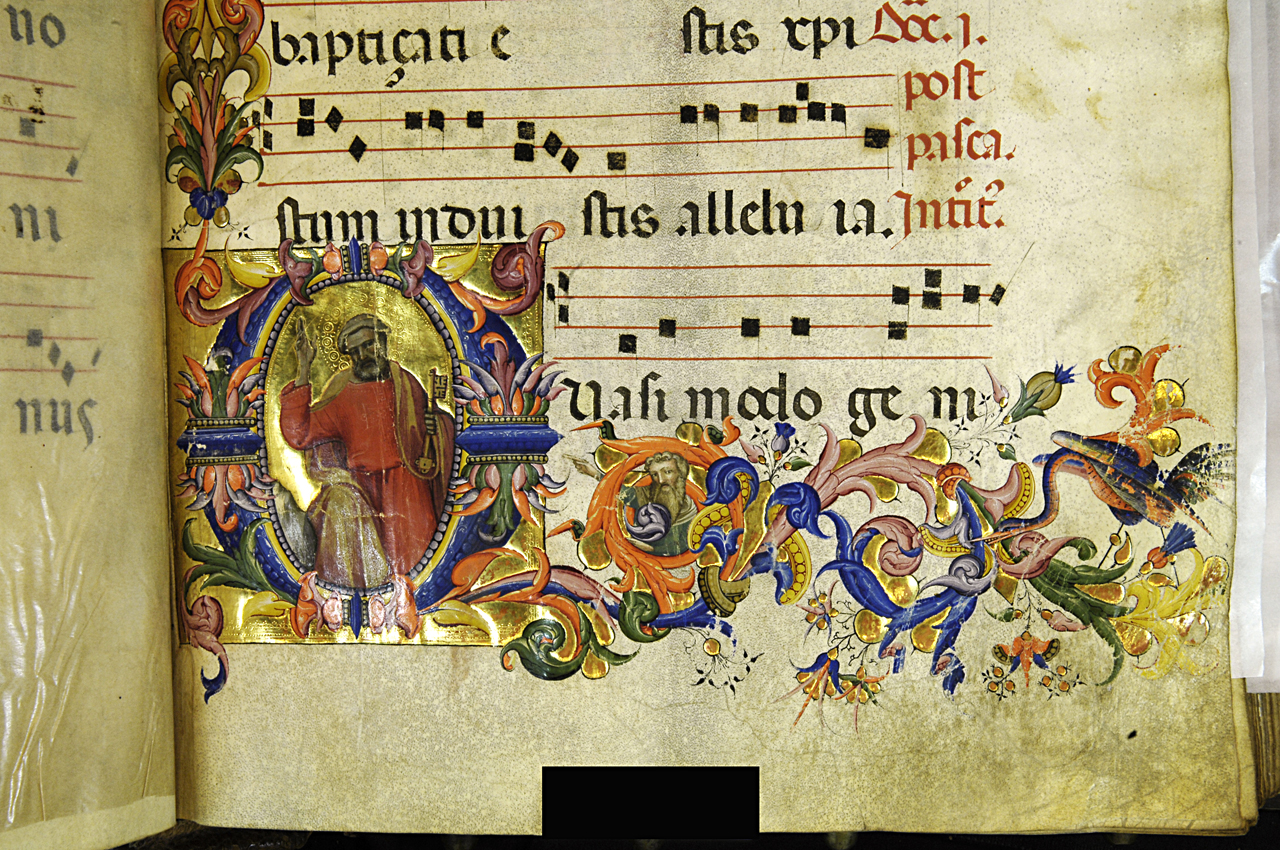 no
ni
nus
baptiçati e stis xpi Dõc. j.
post
pasca.
stum indui stis allelu ia. Introit.
Uasi modo ge ni